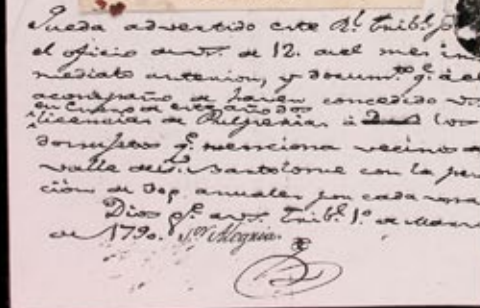 Queda advertido este Rl. Tribl. p
el oficio de vs. de 12. del mes in
mediato anterior, y docum.to q.e á el
acompaña de haver concedido vs.
en Curso de este año dos
licencias de Pulperias á los
dos sujetos q.e menciona vecino de
valle de Sn. Bartolome con la pen
cion de 30 p. anuales por cada una
Dios g.e a vs. Tribl. 1.o de Marzo
de 1790. S.or Alegria.